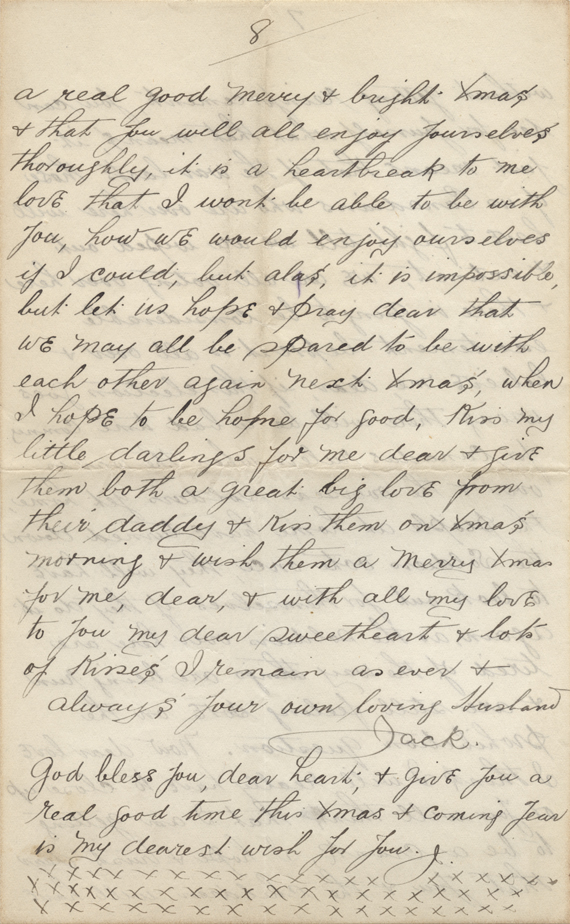 8
a real good Merry & bright Xmas
& that you will all enjoy yourselves
thoroughly, it is a heartbreak to me
love that I wont be able to be with
you, how we would enjoy ourselves
if I could, but alas, it is impossible,
but let us hope & pray dear that
we may all be spared to be with
each other again next Xmas, when
I hope to be home for good, Kiss my
little darlings for me dear & give
them both a great big love from
their daddy & Kiss them on Xmas
morning & wish them a Merry Xmas
for me, dear, & with all my love
to you my dear sweetheart & lots
of Kisses I remain as ever &
always your own loving Husband
Jack.
God bless you, dear heart, & give you a
real good time this Xmas & coming year
is my dearest wish for you. J.
x x x x x x x x x x x x x x x x
x x x x x x x x x x x x x x x x x x
x x x x x x x x x x x x x x x x x